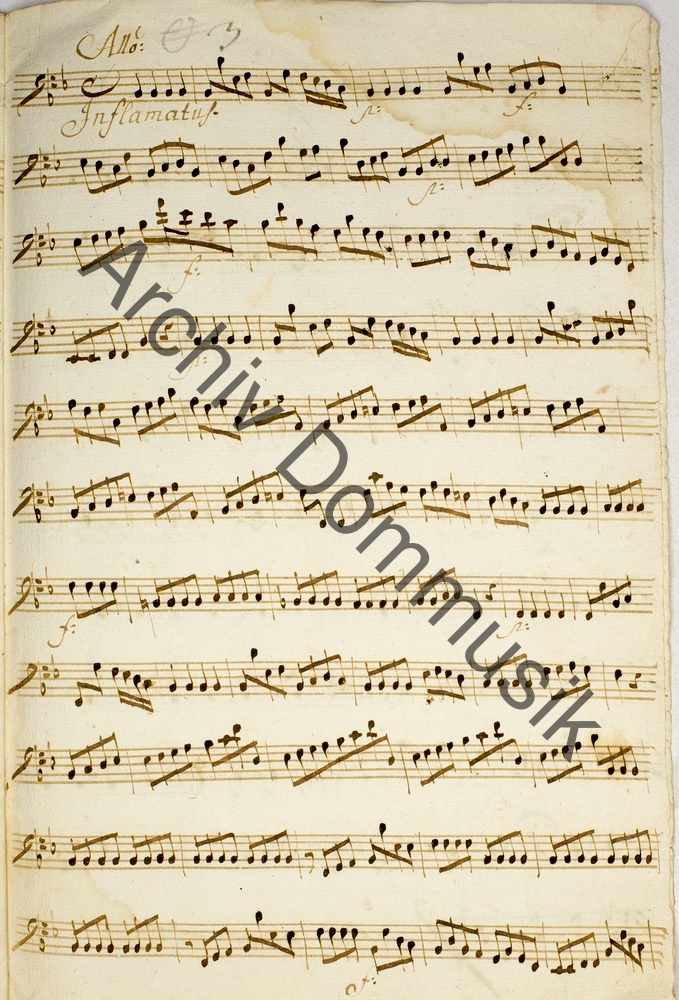 Allo: 3
Inflamatus.
p: f:
p:
f:
p:
f: p:
f:
Archiv Dommusik